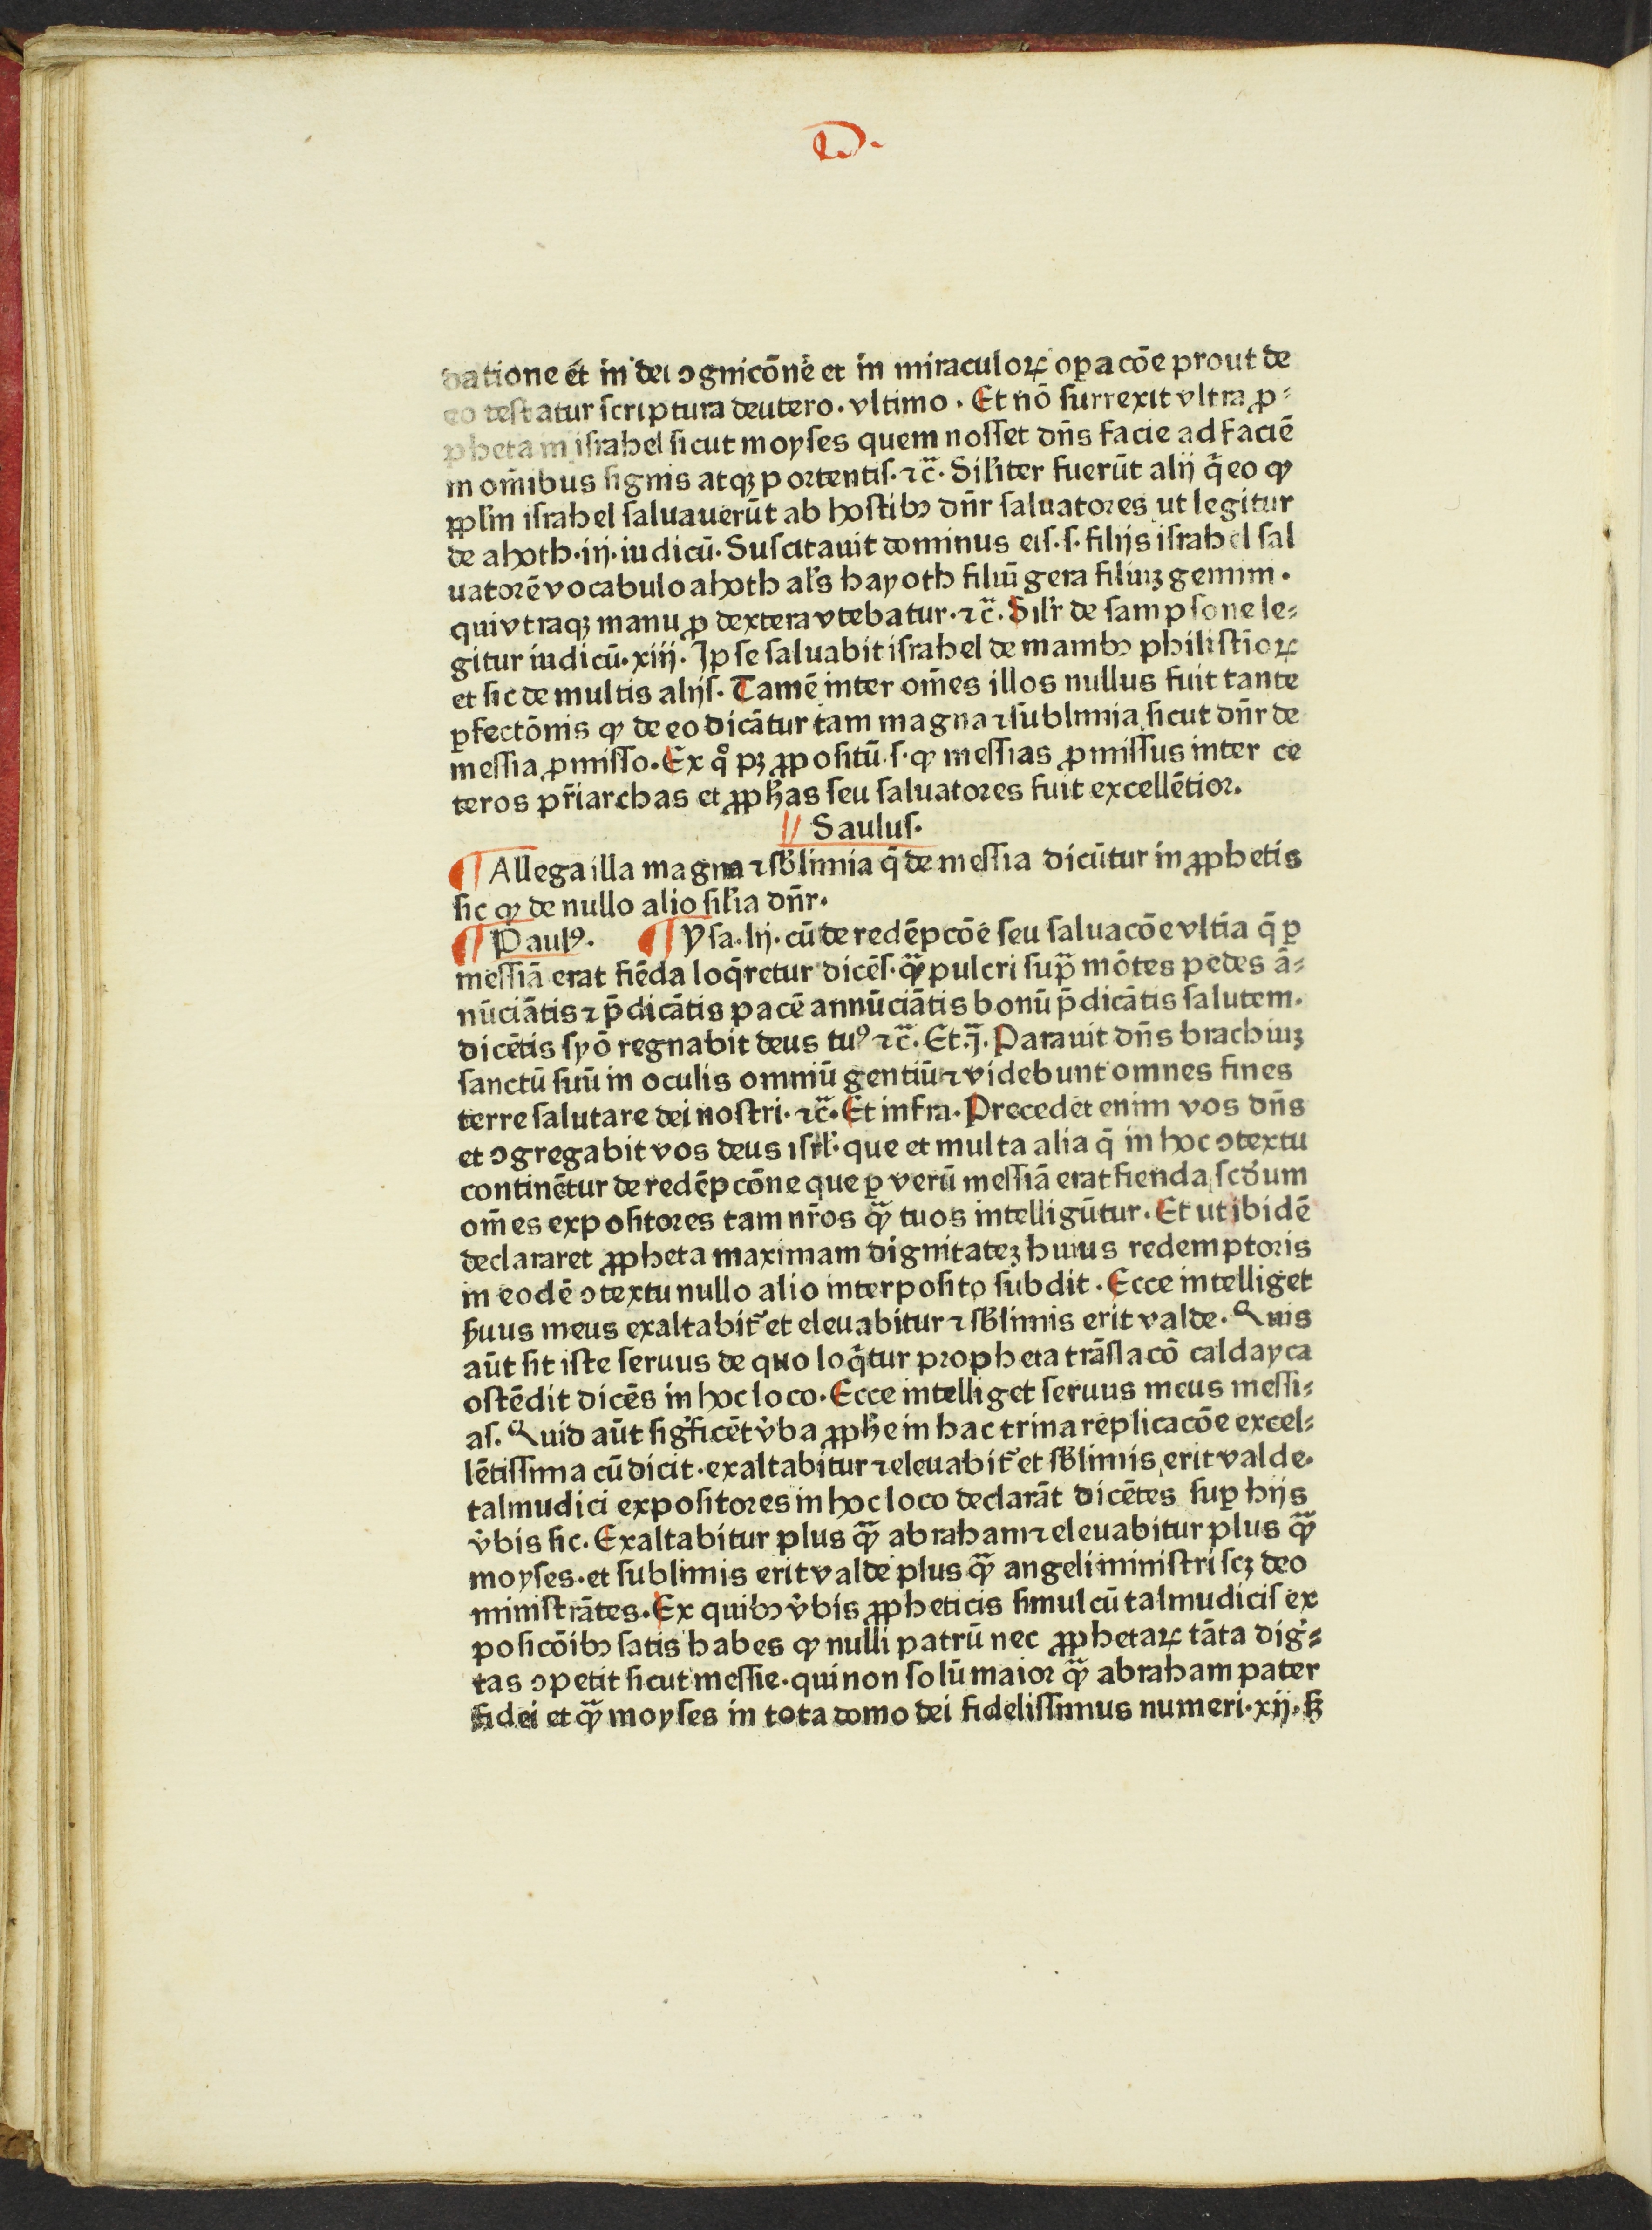 D.
datione et in dei ꝯgnicōne et in miraculoꝝ oꝑacōe prout de
eo testatur scriptura deutero. vltimo. Et nō surrexit vltra ꝓ-
pheta in israhel sicut moyses quem nosset dn̄s facie ad faciē
in om̄ibus signis atqꝫ portentis. ⁊c̄. Silr̄iter fuerūt alij q̄ eo ꝙ
ppl̄m israhel saluauerūt ab hostibꝰ dn̄r saluatores ut legitur
de ahoth. iij. iudicū. Suscitauit dominus eis. s. filijs israhel sal
uatorē vocabulo ahoth al's hayoth filiū gera filiuꝫ gemini.
qui vtraqꝫ manu ꝓ dextera vtebatur. ⁊c̄. Silr̄ de sampsone le-
gitur iudicū. xiij. Ipse saluabit israhel de manibꝰ philistioꝝ
et sic de multis alijs. Tamē inter om̄es illos nullus fuit tante
ꝑfectōnis ꝙ de eo dicātur tam magna ⁊ sublimia sicut dn̄r de
messia ꝓmisso. Ex qͦ pꝫ ꝓpositū. s. ꝙ messias ꝓmissus inter ce
teros pr̄iarchas et ꝓph̄as seu saluatores fuit excellētior.
Saulus.
¶ Allega illa magna ⁊ sb̄limia q̄ de messia dicūtur in ꝓphetis
sic ꝙ de nullo alio sil̄ia dn̄r.
¶ Paulꝰ. ¶ Ysa. lij. cū de redēpcōe seu saluacōe vltīa q̄ ꝑ
messiā erat fiēda loq̄retur dicēs. qͣꝫ pulcri supͣ mōtes pedes ā-
nūciātis ⁊ p̄dicātis pacē annūciātis bonū p̄dicātis salutem.
dicētis syō regnabit deus tuꝰ ⁊c̄. Et .j̄. Parauit dn̄s brachiuꝫ
sanctū suū in oculis omniū gentiū ⁊ videbunt omnes fines
terre salutare dei nostri. ⁊c̄. Et infra. Precedet enim vos dn̄s
et ꝯgregabit vos deus isrl̄. que et multa alia q̄ in hoc ꝯtextu
continētur de redēpcōne que ꝑ verū messiā erat fienda scd'um
om̄es expositores tam nr̄os qͣꝫ tuos intelligūtur. Et ut ibidē
declararet ꝓpheta maximam dignitateꝫ huius redemptoris
in eodē ꝯtextu nullo alio interposito subdit. Ecce intelliget
s̄uus meus exaltabit' et eleuabitur ⁊ sb̄limis erit valde. Quis
aūt sit iste seruus de quo loq̄tur propheta trāslacō caldayca
ostēdit dicēs in hoc loco. Ecce intelliget seruus meus messi-
as. Quid aūt sig'ficēt v̄ba ꝓph̄e in hac trina replicacōe excel-
lētissima cū dicit. exaltabitur ⁊ eleuabit' et sb̄limis erit valde.
talmudici expositores in hoc loco declarāt dicētes suꝑ hijs
v̄bis sic. Exaltabitur plus qͣꝫ abraham ⁊ eleuabitur plus qͣꝫ
moyses. et sublimis erit valde plus qͣꝫ angeli ministri scꝫ deo
ministrātes. Ex quibꝰ v̄bis ꝓpheticis simul cū talmudicis ex
posicōibꝰ satis habes ꝙ nulli patrū nec ꝓphetaꝝ tāta dig'-
tas ꝯpetit sicut messie. qui non solū maior qͣꝫ abraham pater
fidei et qͣꝫ moyses in tota domo dei fidelissimus numeri. xij. sꝫ